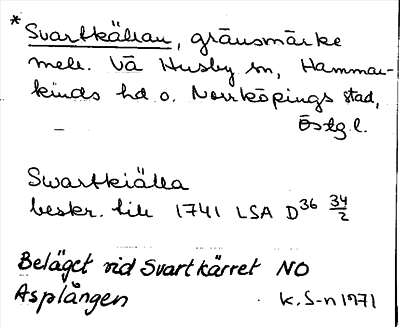 * Svartkällan, gränsmärke
mell. Vä Husby sn, Hammar-
kinds hd o. Norrköpings stad,
Östg. l.
–
Swartkiälla
beskr. till 1741 LSA D36 34/2
Beläget vid Svartkärret NO
Asplången
K. S-n 1971